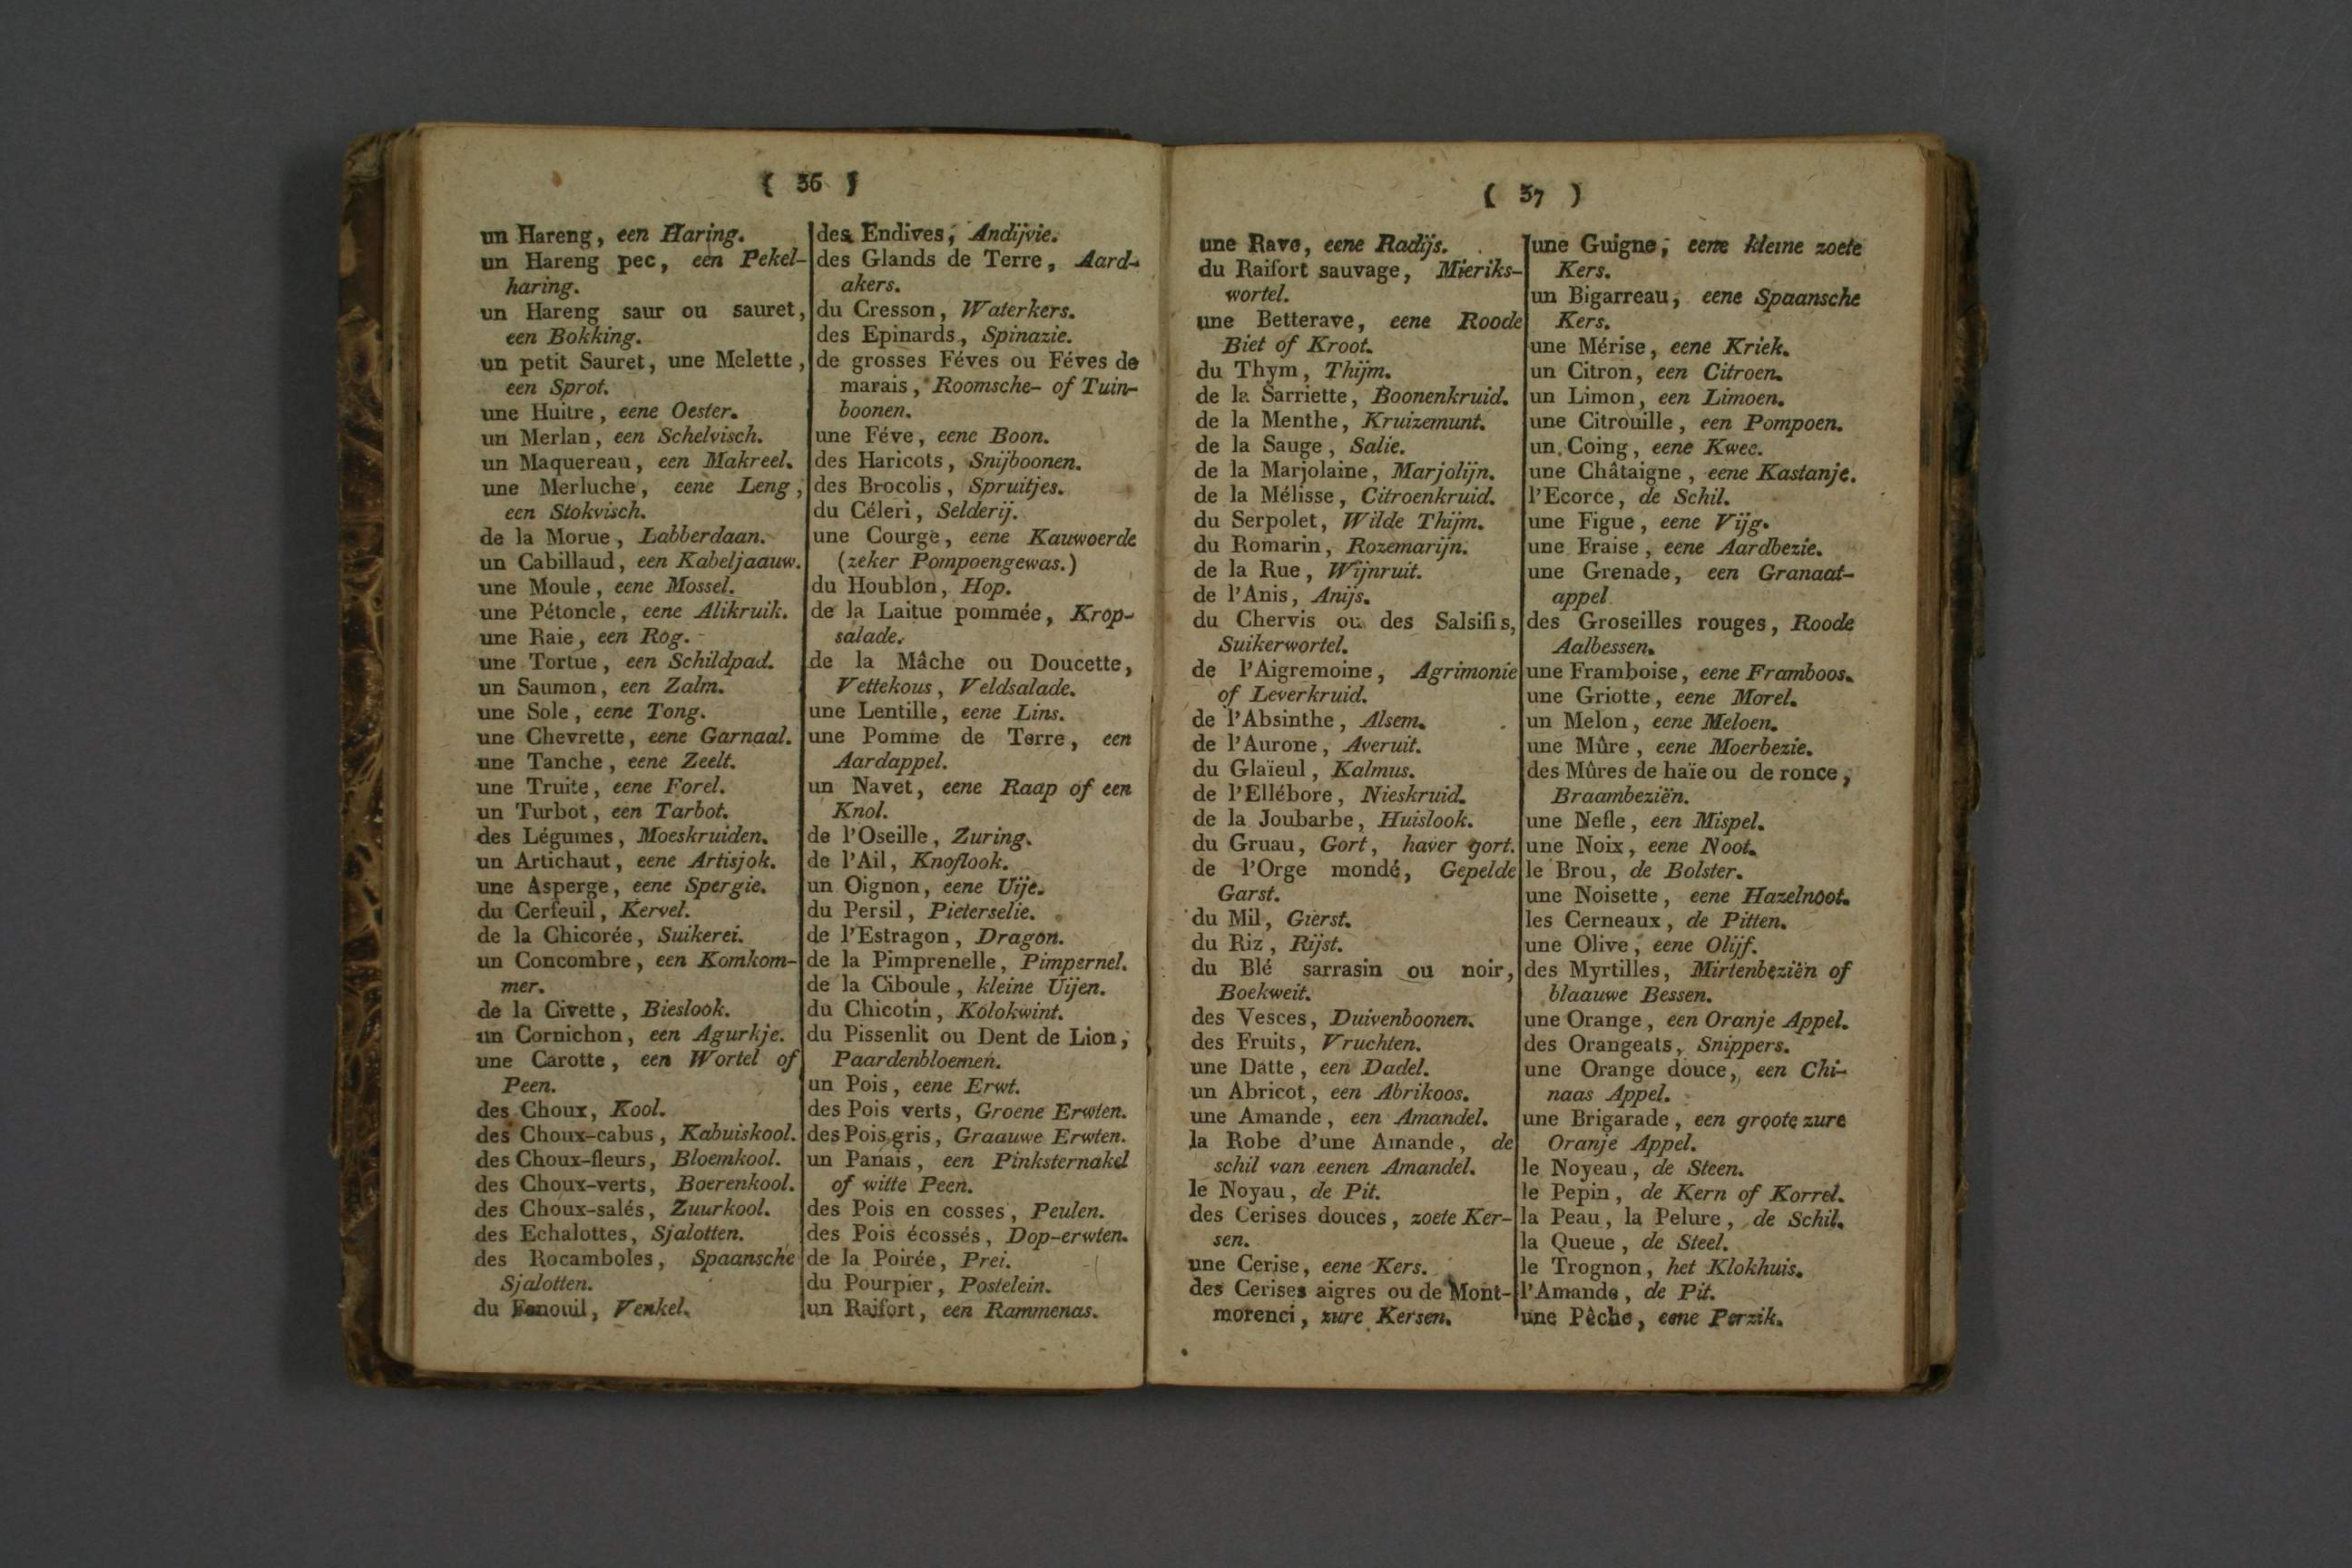 ( 36 )
un Hareng, een Haring.
un Hareng pec, een Pekel-
haring.
un Hareng saur ou sauret,
een Bokking.
un petit Sauret, une Melette,
een Sprot.
une Huitre, eene Oester.
un Merlan, een Schelvisch.
un Maquereau, een Makreel.
une Merluche, eene Leng,
een Stokvisch.
de la Morue, Labberdaan.
un Cabillaud, een Kabeljaauw.
une Moule, eene Mossel.
une Pétoncle, eene Alikruik.
une Raie, een Rog.
une Tortue, een Schildpad.
un Saumon, een Zalm.
une Sole, eene Tong.
une Chevrette, eene Garnaal.
une Tanche, eene Zeelt.
une Truite, eene Forel.
un Turbot, een Tarbot.
des Légumes, Moeskruiden.
un Artichaut, eene Artisjok.
une Asperge, eene Spergie.
du Cerfeuil, Kervel.
de la Chicorée, Suikerei.
un Concombre, een Komkom-
mer.
de la Civette, Bieslook.
un Cornichon, een Agurkje.
une Carotte, een Wortel of
Peen.
des Choux, Kool.
des Choux-cabus, Kabuiskool.
des Choux-fleurs, Bloemkool.
des Choux-verts, Boerenkool.
des Choux-salés, Zuurkool.
des Echalottes, Sjalotten.
des Rocamboles, Spaansche
Sjalotten.
du Fenouil, Venkel.
des Endives, Andijvie.
des Glands de Terre, Aard-
akers.
du Cresson, Waterkers.
des Epinards, Spinazie.
de grosses Féves ou Féves de
marais, Roomsche- of Tuin-
boonen.
une Féve, eene Boon.
des Haricots, Snijboonen.
des Brocolis, Spruitjes.
du Céleri, Selderij.
une Courge, eene Kauwoerde
(zeker Pompoengewas.)
du Houblon, Hop.
de la Laitue pommée, Krop-
salade.
de la Mâche ou Doucette,
Vettekous, Veldsalade.
une Lentille, eene Lins.
une Pomme de Terre, een
Aardappel.
un Navet, eene Raap of een
Knol.
de l'Oseille, Zuring.
de l'Ail, Knoflook.
un Oignon, eene Uije.
du Persil, Pieterselie.
de l'Estragon, Dragon.
de la Pimprenelle, Pimpernel.
de la Ciboule, kleine Uijen.
du Chicotin, Kolokwint.
du Pissenlit ou Dent de Lion,
Paardenbloemen.
un Pois, eene Erwt.
des Pois verts, Groene Erwten.
des Pois gris, Graauwe Erwten.
un Panais, een Pinksternakel
of witte Peen.
des Pois en cosses, Peulen.
des Pois écossés, Dop-erwten.
de la Poirée, Prei.
du Pourpier, Postelein.
un Raifort, een Rammenas.
( 37 )
une Rave, eene Radijs.
du Raifort sauvage, Mieriks-
wortel.
une Betterave, eene Roode
Biet of Kroot.
du Thym, Thijm.
de la Sarriette, Boonenkruid.
de la Menthe, Kruizemunt.
de la Sauge, Salie.
de la Marjolaine, Marjolijn.
de la Mélisse, Citroenkruid.
du Serpolet, Wilde Thijm.
du Romarin, Rozemarijn.
de la Rue, Wijnruit.
de l'Anis, Anijs.
du Chervis ou des Salsifis,
Suikerwortel.
de l'Aigremoine, Agrimonie
of Leverkruid.
de l'Absinthe, Alsem.
de l'Aurone, Averuit.
du Glaïeul, Kalmus.
de l'Ellébore, Nieskruid.
de la Joubarbe, Huislook.
du Gruau, Gort, haver gort.
de l'Orge mondé, Gepelde
Garst.
du Mil, Gierst.
du Riz, Rijst.
du Blé sarrasin ou noir,
Boekweit.
des Vesces, Duivenboonen.
des Fruits, Vruchten.
une Datte, een Dadel.
un Abricot, een Abrikoos.
une Amande, een Amandel.
la Robe d'une Amande, de
schil van eenen Amandel.
le Noyau, de Pit.
des Cerises douces, zoete Ker-
sen.
une Cerise, eene Kers.
des Cerises aigres ou de Mont-
morenci, zure Kersen.
une Guigne, eene kleine zoete
Kers.
un Bigarreau, eene Spaansche
Kers.
une Mérise, eene Kriek.
un Citron, een Citroen.
un Limon, een Limoen.
une Citrouille, een Pompoen.
un Coing, eene Kwee.
une Châtaigne, eene Kastanje.
l'Ecorce, de Schil.
une Figue, eene Vijg.
une Fraise, eene Aardbezie.
une Grenade, een Granaat-
appel
des Groseilles rouges, Roode
Aalbessen.
une Framboise, eene Framboos.
une Griotte, eene Morel.
un Melon, eene Meloen.
une Mûre, eene Moerbezie.
des Mûres de haïe ou de ronce,
Braambeziën.
une Nefle, een Mispel.
une Noix, eene Noot.
le Brou, de Bolster.
une Noisette, eene Hazelnoot.
les Cerneaux, de Pitten.
une Olive, eene Olijf.
des Myrtilles, Mirtenbeziën of
blaauwe Bessen.
une Orange, een Oranje Appel.
des Orangeats, Snippers.
une Orange douce, een Chi-
naas Appel.
une Brigarade, een groote zure
Oranje Appel.
le Noyeau, de Steen.
le Pepin, de Kern of Korrel.
la Peau, la Pelure, de Schil.
la Queue, de Steel.
le Trognon, het Klokhuis.
l'Amande, de Pit.
une Pêche, eene Perzik.